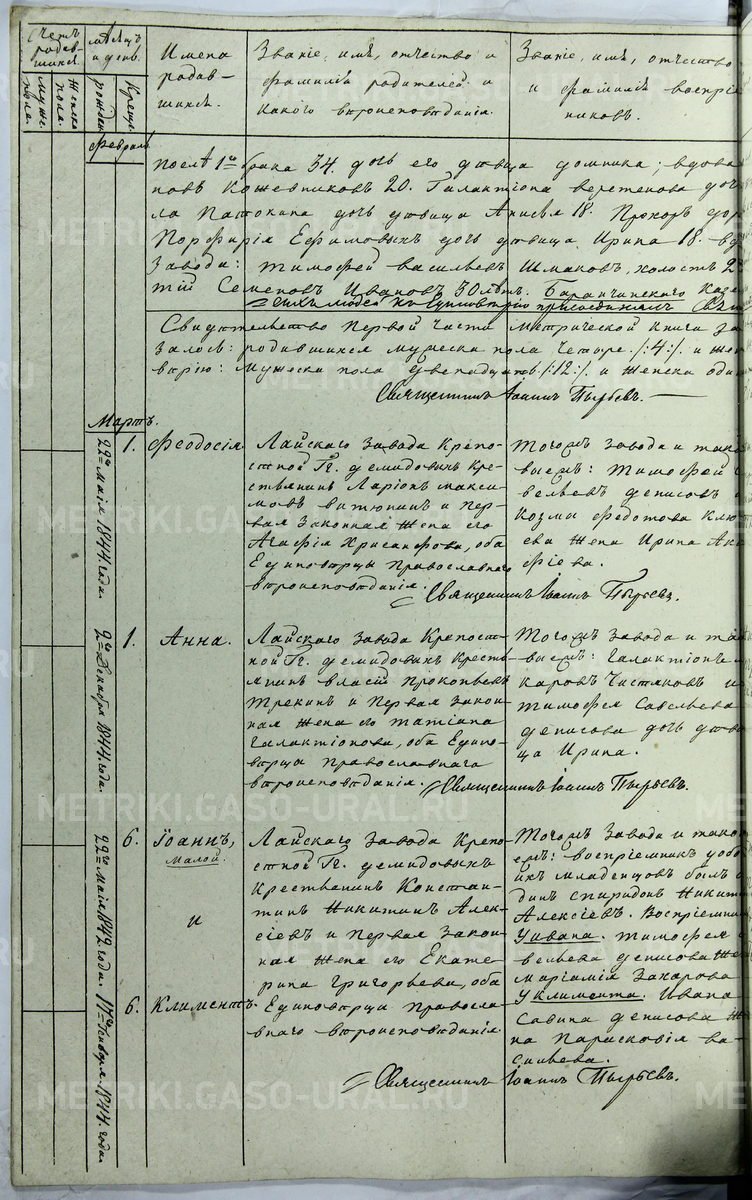 Счетъ родив- шихся. Мѣсяцъ и день.
Мужес. пола. Женска пола. рожден. Креще.
Имена
родив-
шихся.
Званіе, имя, отчество и
фамилія родителей и
какого вѣроисповѣданія.
Званіе, имя, отчество
и фамилія воспріе-
никовъ.
Февраль
послѣ 1го брака 34. дочь его дѣвица Домника; вдова
новъ Кожевниковъ 20. Галактіона Веретенова доч
ла Патокина дочь дѣвица 18. Прохоръ
Порфирія Ефимовыхъ дочь дѣвица Ирина 18.
Завода: Тимофей Васильевъ Шмаковъ, холостъ
тій Семеновъ Ивановъ 50 лѣтъ. Баранчинскаго
сихъ людей присоединилъ
Свидѣтельство первой части метрической книги за
залось: родившихся мужеска пола четыре /:4:/ и жен
мужеска пола двенадцать /:12:/ и женска оди
Священникъ Іоаннъ Пырьевъ.
Мартъ.
22го Маія 1844 года.
1. Феодосія.
Лайскаго завода крепо-
стной Гг. Демидовыхъ кре-
стьянинъ Ларіонъ Макси-
мовъ Витюнинъ и пер-
вая законная жена его
Агафія Хрисанфова, оба
Единовѣрцы православнаго
вѣроисповѣданія.
Тогожъ завода и тако
выежъ: Тимофей
вельевъ Денисовъ
Козмы Федотова Клю
ева жена Ирина
фіева.
Священникъ Іоаннъ Пырьевъ.
2го Декабря 1844 года.
1. Анна.
Лайскаго завода крепост-
ной Гг. Демидовыхъ кресть-
янинъ Власій Прокопьевъ
Трекинъ и первая закон-
ная жена его Татіана
Галактіонова, оба Едино-
вѣрцы православнаго
вѣроисповѣданія.
Тогожъ завода и та
выежъ: Галактіонъ
каровъ Чистяковъ и
Тимофея Савельева
Денисова дочь дѣви
ца Ирина.
Священникъ Іоаннъ Пырьевъ.
22го Маія 1842 года.
6. Іоаннъ,
малой.
и
17го Января 1844 года.
6. Климентъ.
Лайскаго завода крепо-
стной Гг. Демидовыхъ
крестьянинъ Констан-
тинъ Никитинъ Алек-
сіевъ и первая закон-
ная жена его Екате-
рина Григорьева, оба
Единовѣрцы правосла-
внаго вѣроисповѣданія.
Тогожъ завода и тако
ежъ: воспріемникъ у обо
ихъ младенцовъ былъ о
динъ Спиридонъ Никит
Алексіевъ. Воспріемни
У Ивана. Тимофея
вельева Денисова же
Маріамія Захарова
У Климента. Ивана
Савина Денисова же
на Парасковія Ва-
сильева.
Священникъ Іоаннъ Пырьевъ.
METRIKI.GASO-URAL.RU